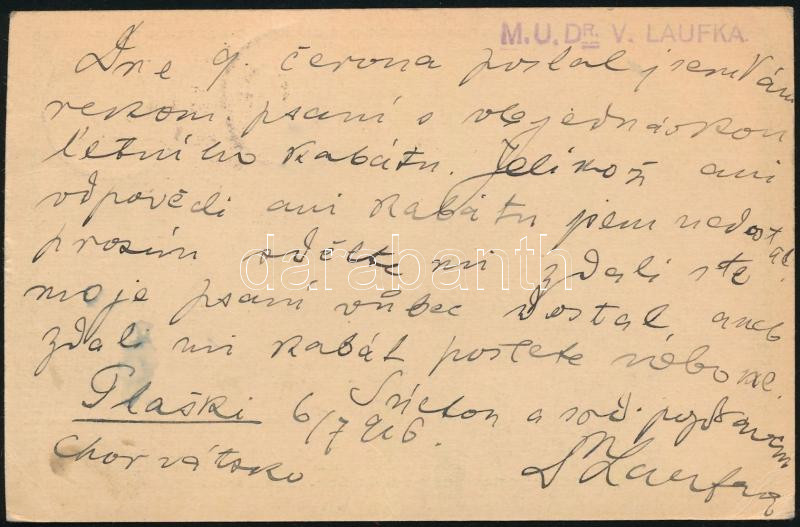 M.U.DR. V. LAUFKA.
Dne 9. června poslal jsem Vám
rekom. psaní s objednávkou
letního kabátu. Jelikož ani
odpovědi ani kabátu jsem nedostal
prosím sdělte mi zdali jste
moje psaní vůbec dostal aneb
zdali mi kabát pošlete nebo ne.
S úctou a srd. pozdravem
Plaški 6/7 916.
Chorvátsko
Dr Laufka
darabanth